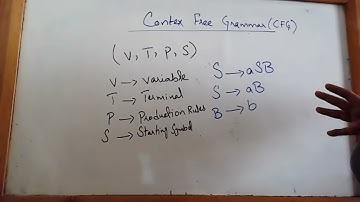 Contex Free Grammar (CFG)
(V, T, P, S)
V → Variable
T → Terminal
P → Production Rules
S → Starting Symbol
S → aSB
S → aB
B → b